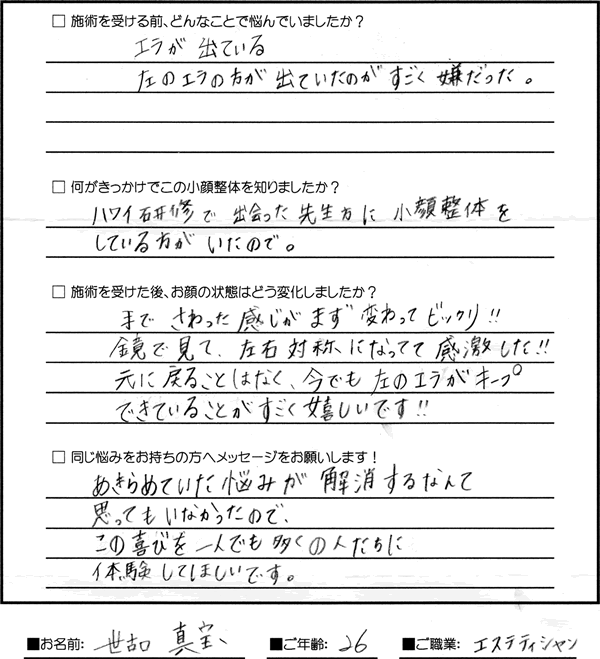 □ 施術を受ける前、どんなことで悩んでいましたか?
エラが出ている
左のエラの方が出ていたのがすごく嫌だった。
□ 何がきっかけでこの小顔整体を知りましたか?
ハワイ研修で出会った先生方に小顔整体を
している方がいたので。
□ 施術を受けた後、お顔の状態はどう変化しましたか?
手でさわった感じがまず変わってビックリ!!
鏡で見て、左右対称になってて感激した!!
元に戻ることはなく、今でも左のエラがキープ
できていることがすごく嬉しいです!!
□ 同じ悩みをお持ちの方へメッセージをお願いします!
あきらめていた悩みが解消するなんて
思ってもいなかったので、
この喜びを一人でも多くの人たちに
体験してほしいです。
■お名前: 世古 真宝 ■ご年齢: 26 ■ご職業: エステティシャン